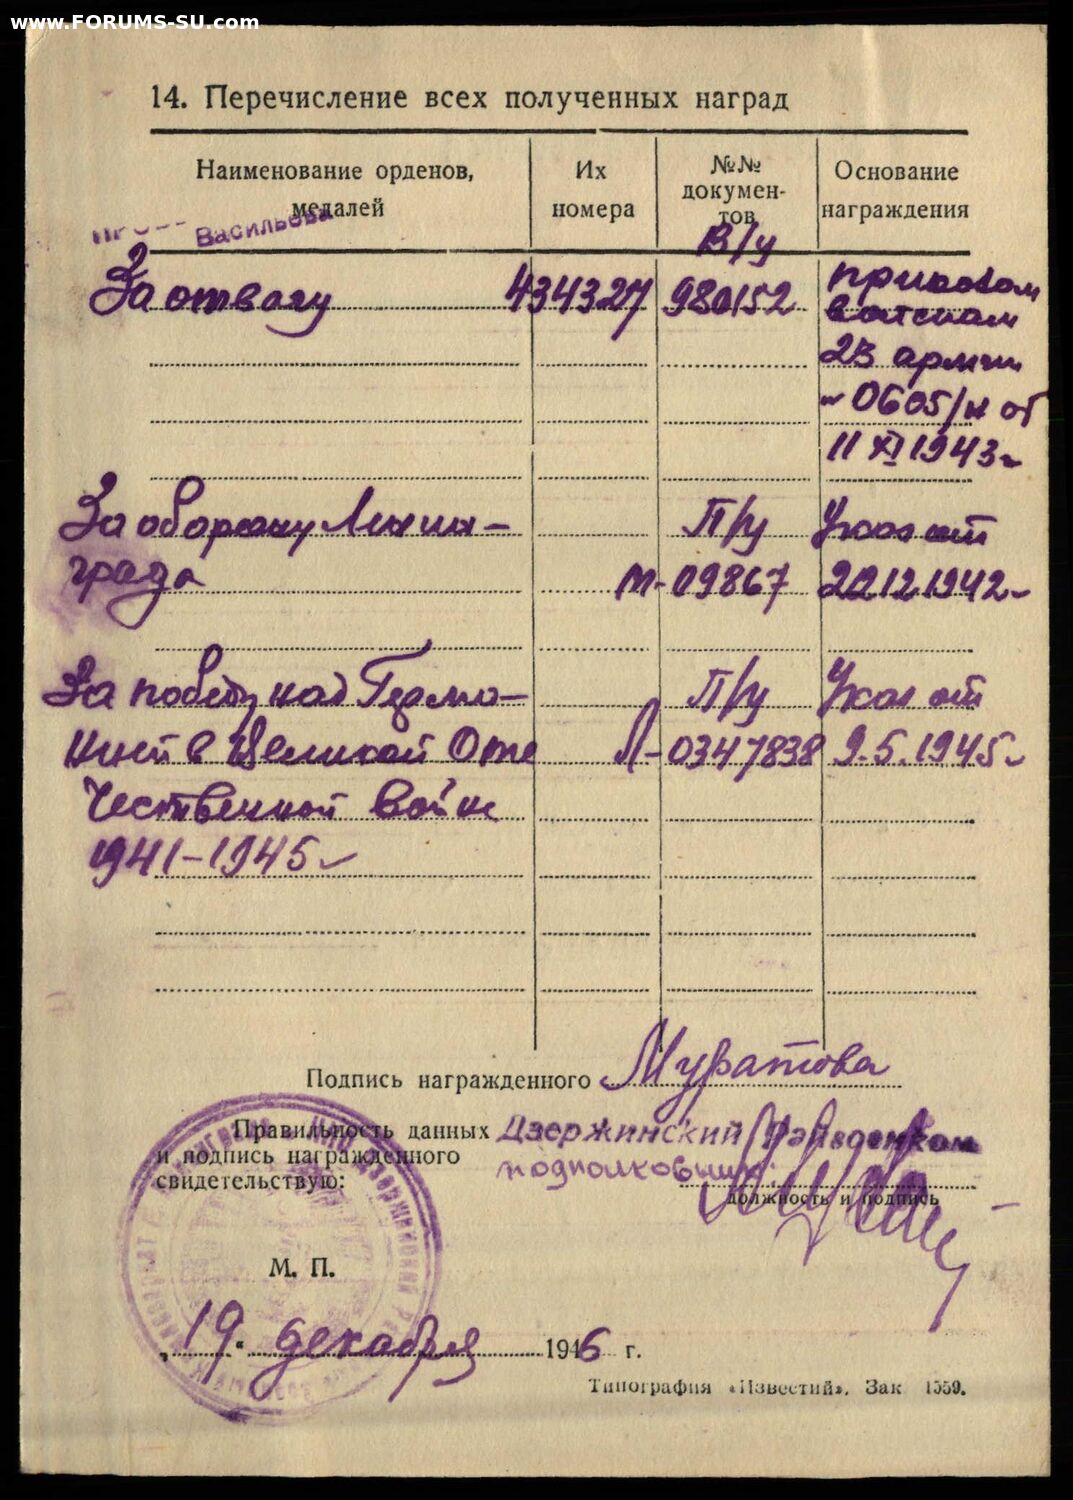 www.FORUMS-SU.com
14. Перечисление всех полученных наград
Наименование орденов, медалей
Их номера
№№ документов
Основание награждения
Васильева
В/у
За отвагу 434327 980152 приказом
войскам
23 армии
0605/н от
11 XI 1943 г
За оборону Ленин-
града
П/у
М-09867
Указ от
22.12.1942 г
За победу над Герма-
нией в Великой Оте
чественной войне
1941-1945 г
П/у
Л-0347838
Указ от
9.5.1945 г
Подпись награжденного Муратова
Правильность данных и подпись награжденного свидетельствую:
Дзержинский Райвоенком
подполковник
должность и подпись
М. П.
„19“ декабря 1946 г.
Типография «Известий». Зак 1559.